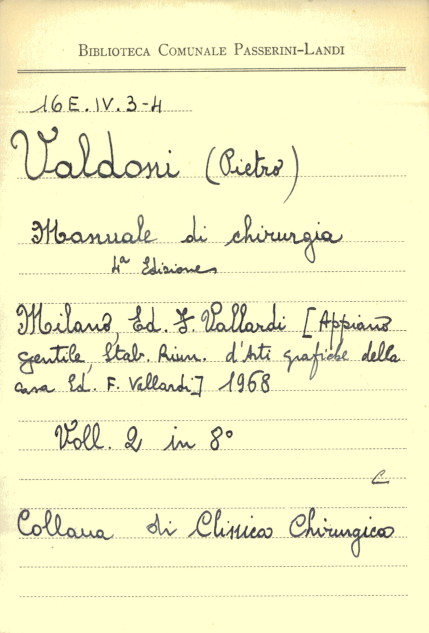 BIBLIOTECA COMUNALE PASSERINI-LANDI
16 E. IV. 3-4
Valdoni (Pietro)
Manuale di chirurgia
4ª Edizione
Milano, Ed. F. Vallardi [Appiano
Gentile, Stab. Riun. d'Arti grafiche della
casa Ed. F. Vallardi] 1968
Voll. 2 in 8°
C
Collana di Clinica Chirurgica